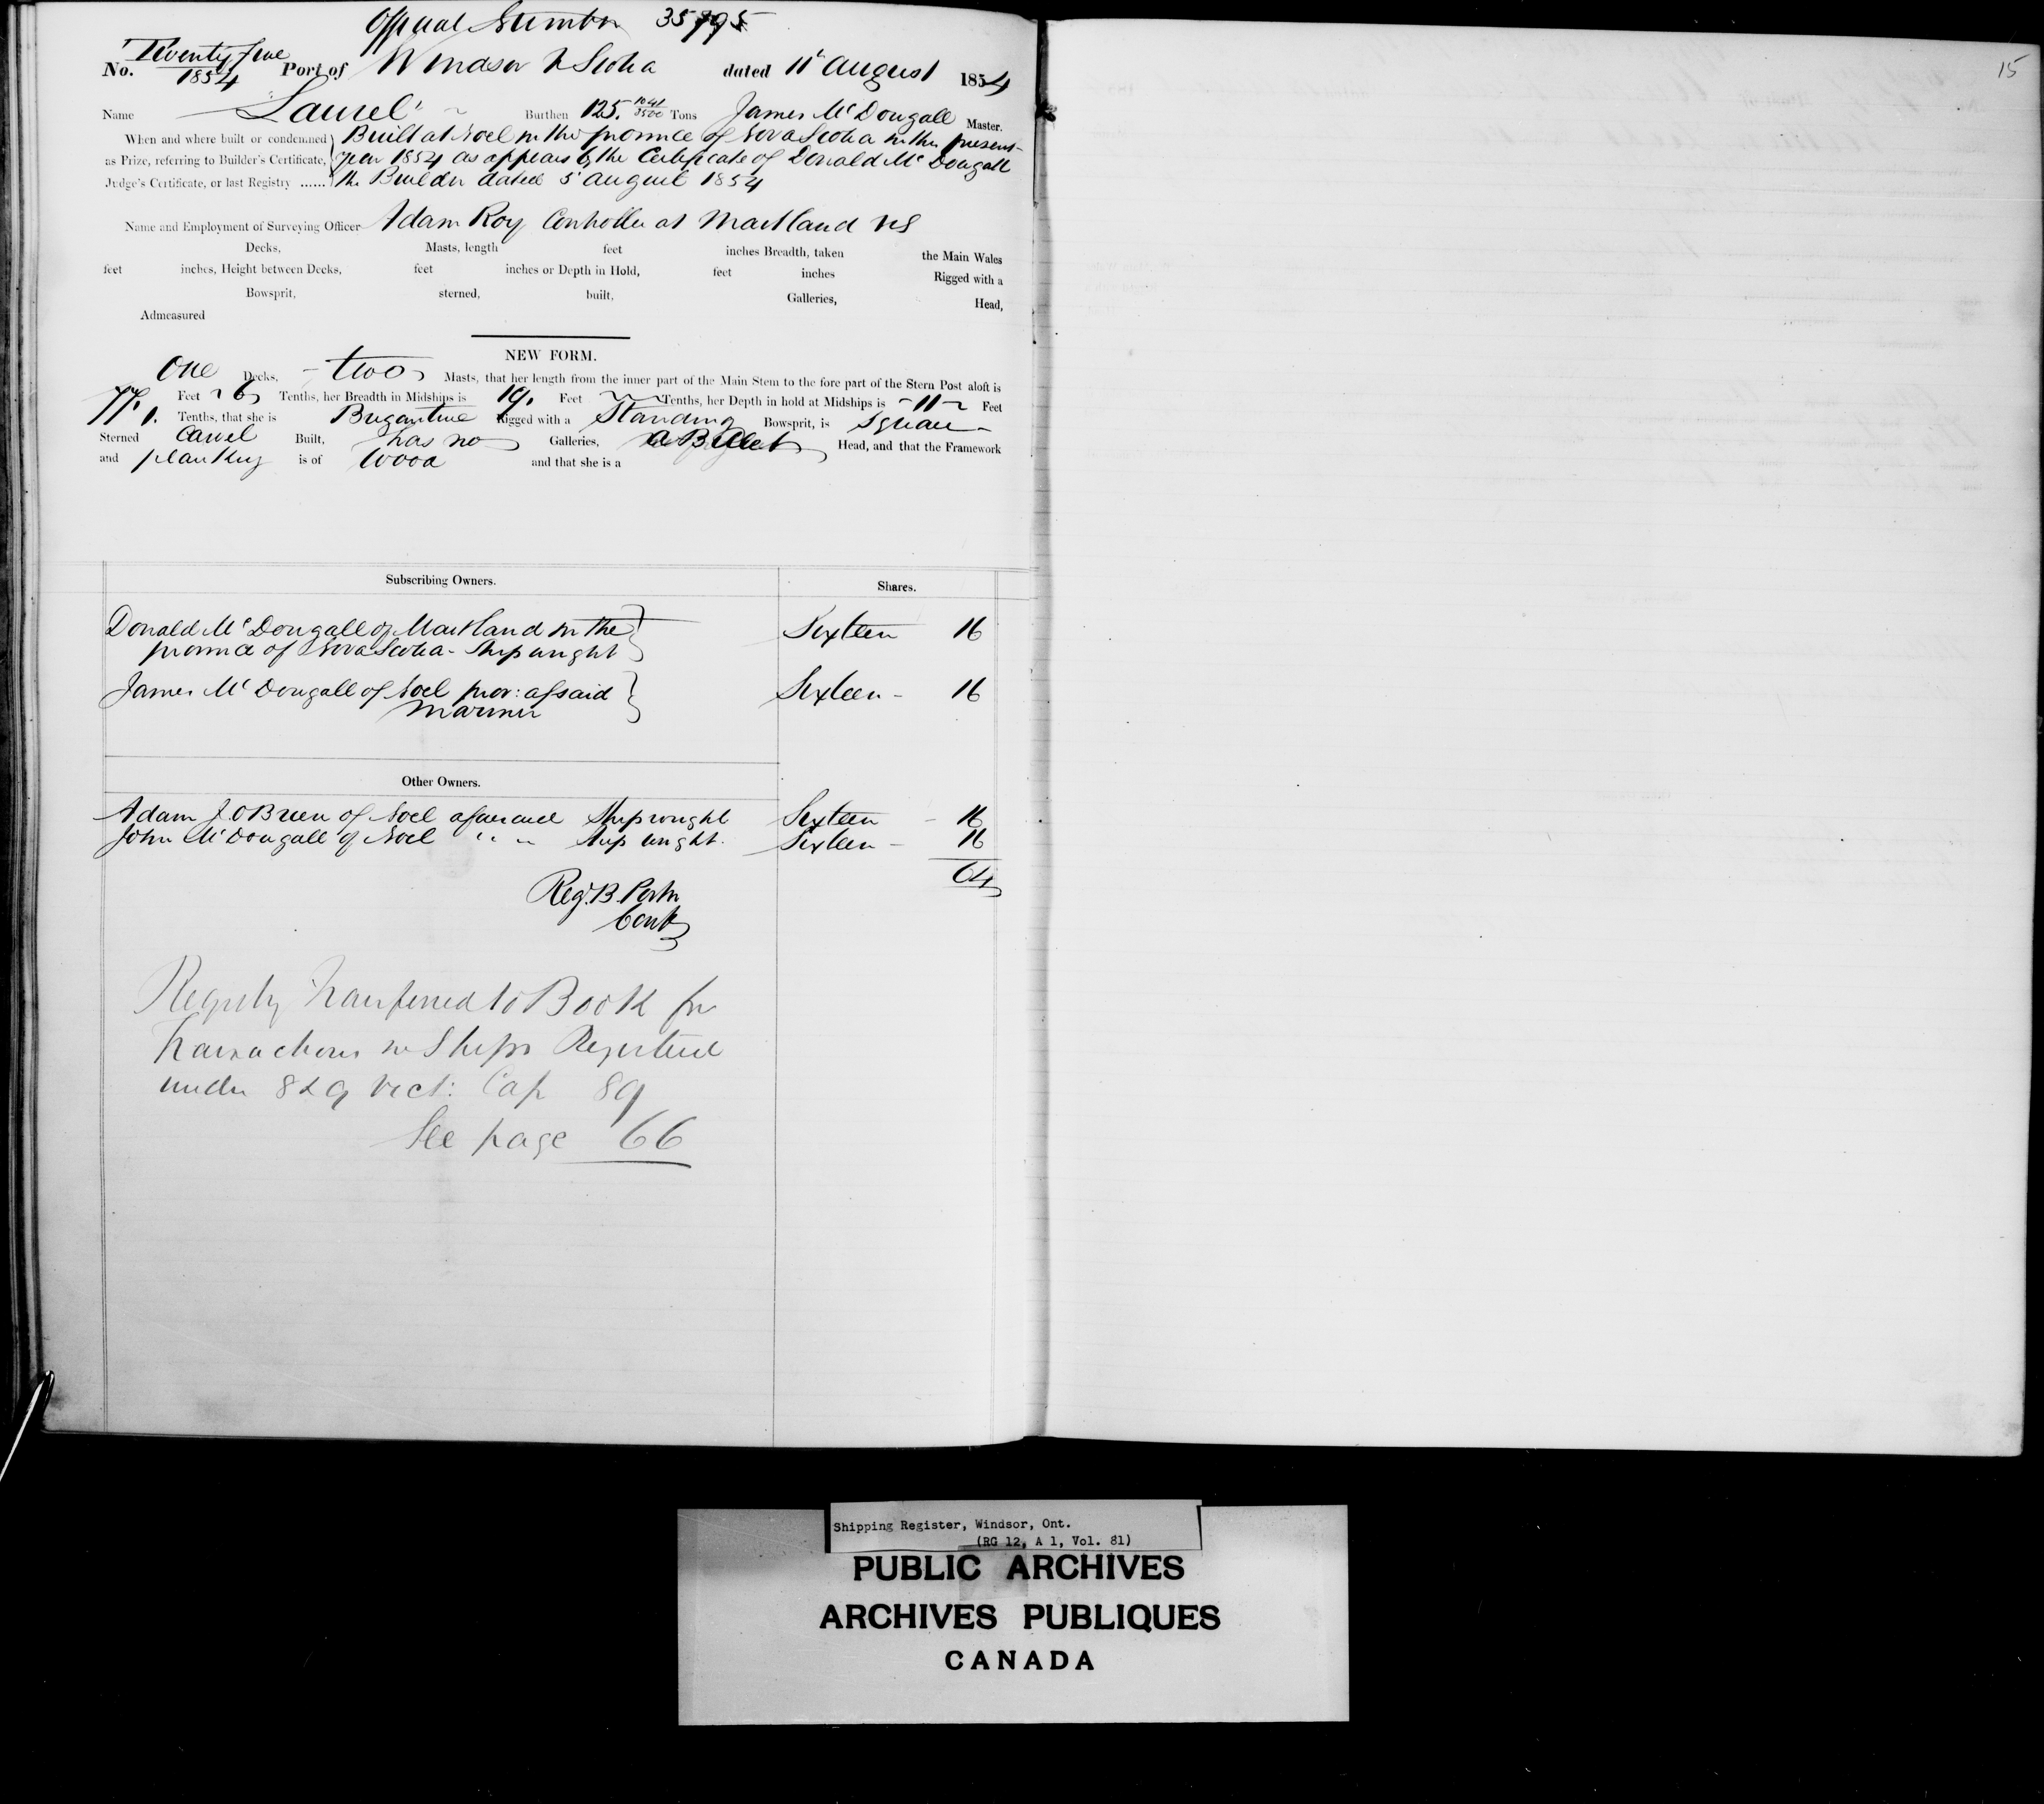 Official Number 35795
No. Twenty five 1854 Port of Windsor N Scotia dated 11 August 1854
Name Laurel Burthen 125. 1041/3500 Tons James McDougall Master.
When and where built or condemned } Built at Noel in the province of Nova Scotia in the present
as Prize, referring to Builder's Certificate, year 1854 as appears by the Certificate of Donald McDougall
Judge's Certificate, or last Registry ...... the Builder dated 5 August 1854
Name and Employment of Surveying Officer Adam Roy Controller at Maitland NS
Decks, Masts, length feet inches Breadth, taken the Main Wales
feet inches, Height between Decks, feet inches or Depth in Hold, feet inches Rigged with a
Bowsprit, sterned, built, Galleries, Head,
Admeasured
NEW FORM.
One Decks, two Masts, that her length from the inner part of the Main Stem to the fore part of the Stern Post aloft is
77. Feet 6 Tenths, her Breadth in Midships is 19. Feet Tenths, her Depth in hold at Midships is 11 Feet
1. Tenths, that she is Brigantine Rigged with a Standing Bowsprit, is Square
Sterned Carvel Built, has no Galleries, a Billet Head, and that the Framework
and planking is of Wood and that she is a
Subscribing Owners. Shares.
Donald McDougall of Maitland in the } Sixteen 16
province of Nova Scotia - Shipwright
James McDougall of Noel prov: afsaid } Sixteen - 16
Mariner
Other Owners.
Adam J. OBrien of Noel aforesaid Shipwright Sixteen - 16
John McDougall of Noel " " Shipwright. Sixteen - 16
64
Reg. B. Porter
Cont
Registry transferred to Book for
transactions in Ships Registered
under 8 & 9 Vict: Cap 89
See page 66
15
Shipping Register, Windsor, Ont.
(RG 12, A 1, Vol. 81)
PUBLIC ARCHIVES
ARCHIVES PUBLIQUES
CANADA